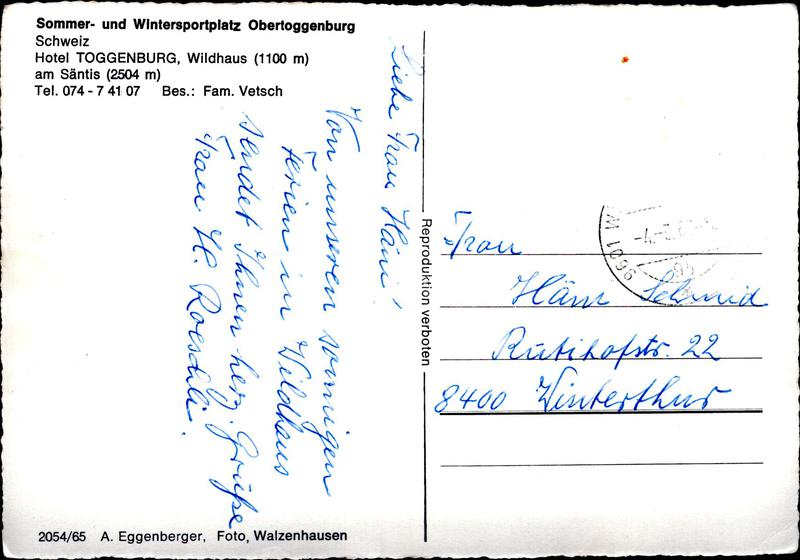 Sommer- und Wintersportplatz Obertoggenburg
Schweiz
Hotel TOGGENBURG, Wildhaus (1100 m)
am Säntis (2504 m)
Tel. 074 - 7 41 07 Bes.: Fam. Vetsch
Liebe Frau Häni!
Von unseren sonnigen
Ferien in Wildhaus
sendet Ihnen herz. Grüße
Frau H. Roeschli.
Reproduktion verboten
9601 W
Frau
Häni Schmid
Rutihofstr. 22
8400 Winterthur
2054/65 A. Eggenberger, Foto, Walzenhausen